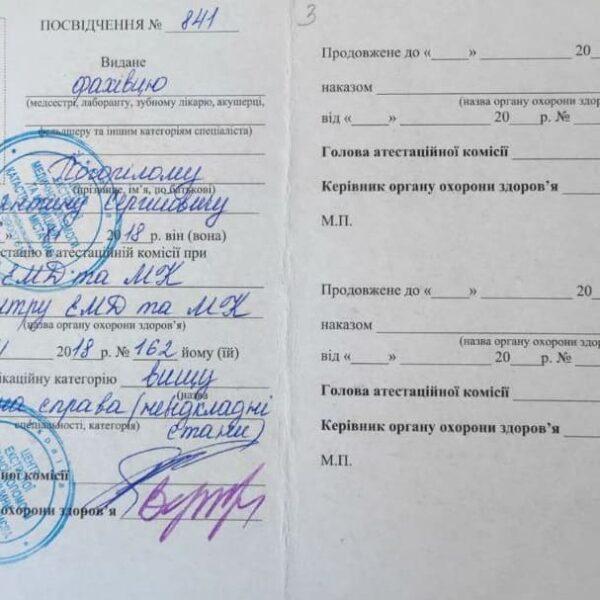 ПОСВІДЧЕННЯ № 841
Видане
фахівцю
(медсестрі, лаборанту, зубному лікарю, акушерці,
фельдшеру та іншим категоріям спеціаліста)
(прізвище, ім'я, по батькові)
Сергійовичу
2018 р. він (вона)
в атестаційній комісії при
ЕМД та МК
ЕМД та МК
(назва органу охорони здоров'я)
2018 р. № 162 йому (їй)
категорію вищу
(назва
справа (невідкладні
спеціальності, категорія) стани)
комісії
охорони здоров'я
3
Продовжене до «____» ________ 20
наказом
(назва органу охорони здор
від «____» ________ 20__ р. №
Голова атестаційної комісії
Керівник органу охорони здоров'я
М.П.
Продовжене до «____» ________ 20
наказом
(назва органу охорони здор
від «____» ________ 20__ р. №
Голова атестаційної комісії
Керівник органу охорони здоров'я
М.П.